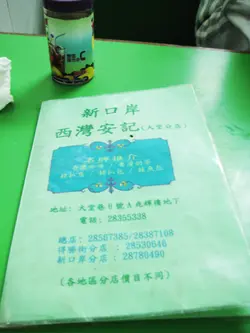 新口岸
西灣安記(大堂分店)
招牌推介
地址: 大堂巷6號A成輝樓地下
電話: 28355338
總店: 28567385/28387108
得勝街分店: 28530646
新口岸分店: 28789490
(各地區分店價目不同)